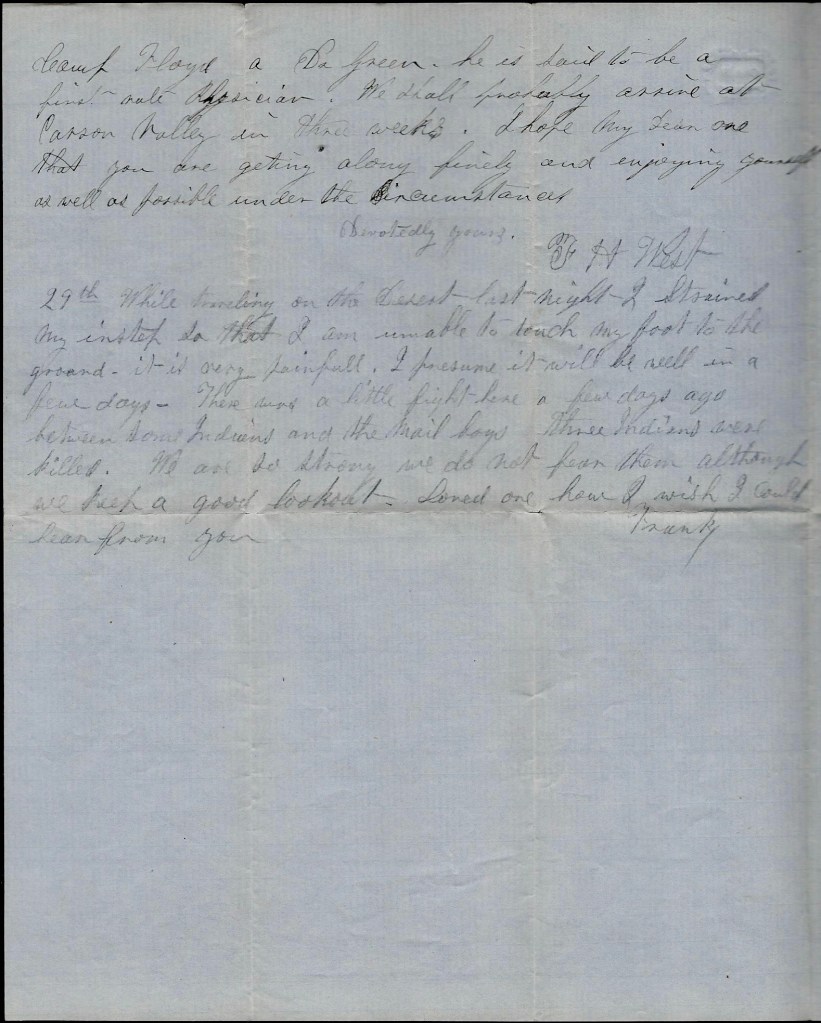 Camp Floyd a Dr Green. he is said to be a
first rate Physician. We shall probably arrive at
Carson Valley in three weeks. I hope my Dear one
that you are geting along finely and enjoying yourself
as well as possible under the Circumstances
Devotedly yours.
F H West
29th While traveling on the Desert last night I Strained
my instep so that I am unable to touch my foot to the
ground - it is very painfull. I presume it will be well in a
few days - There was a little fight here a few days ago
between some Indians and the Mail boys three Indians were
killed. We are so strong we do not fear them although
we keep a good lookout - Loved one how I wish I could
hear from you
Frank